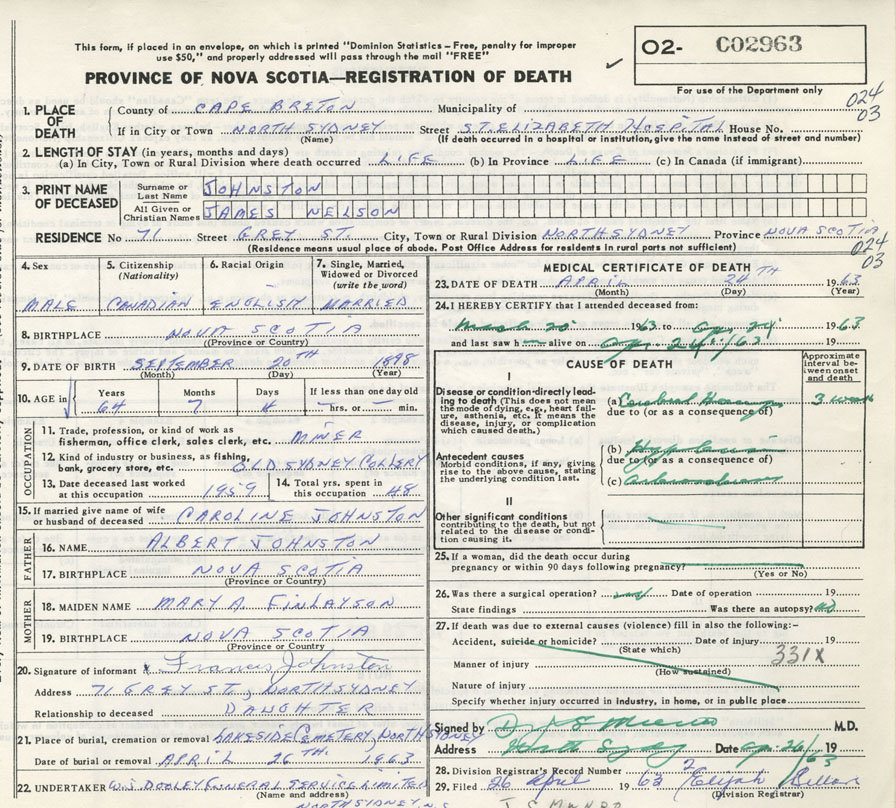 This form, if placed in an envelope, on which is printed "Dominion Statistics – Free, penalty for improper
use $50," and properly addressed will pass through the mail "FREE"
PROVINCE OF NOVA SCOTIA—REGISTRATION OF DEATH
O2- C02963
For use of the Department only
024
03
1. PLACE OF DEATH
County of CAPE BRETON Municipality of
If in City or Town NORTH SYDNEY Street ST. ELIZABETH HOSPITAL House No.
(Name) (If death occurred in a hospital or institution, give the name instead of street and number)
2. LENGTH OF STAY (in years, months and days)
(a) In City, Town or Rural Division where death occurred LIFE (b) In Province LIFE (c) In Canada (if immigrant)
3. PRINT NAME OF DECEASED
Surname or Last Name JOHNSTON
All Given or Christian Names JAMES NELSON
RESIDENCE No 71 Street GREY ST. City, Town or Rural Division NORTH SYDNEY Province NOVA SCOTIA
(Residence means usual place of abode. Post Office Address for residents in rural parts not sufficient)
024
03
4. Sex
MALE
5. Citizenship (Nationality)
CANADIAN
6. Racial Origin
ENGLISH
7. Single, Married, Widowed or Divorced (write the word)
MARRIED
8. BIRTHPLACE NOVA SCOTIA
(Province or Country)
9. DATE OF BIRTH SEPTEMBER 20TH 1898
(Month) (Day) (Year)
10. AGE in Years Months Days If less than one day old
64 7 4 hrs. or min.
OCCUPATION
11. Trade, profession, or kind of work as fisherman, office clerk, sales clerk, etc. MINER
12. Kind of industry or business, as fishing, bank, grocery store, etc. OLD SYDNEY COLLERY
13. Date deceased last worked at this occupation 1959
14. Total yrs. spent in this occupation 48
15. If married give name of wife or husband of deceased CAROLINE JOHNSTON
FATHER
16. NAME ALBERT JOHNSTON
17. BIRTHPLACE NOVA SCOTIA
(Province or Country)
MOTHER
18. MAIDEN NAME MARY A. FINLAYSON
19. BIRTHPLACE NOVA SCOTIA
(Province or Country
20. Signature of informant x Francis Johnston
Address 71 GREY ST., NORTH SYDNEY
Relationship to deceased DAUGHTER
21. Place of burial, cremation or removal LAKESIDE CEMETERY, NORTH SYDNEY
Date of burial or removal APRIL 26TH. 1963
22. UNDERTAKER W. J. DOOLEY FUNERAL SERVICE LIMITED
(Name and address)
NORTH SYDNEY, N.S.
MEDICAL CERTIFICATE OF DEATH
23. DATE OF DEATH APRIL 24TH 1963
(Month) (Day) (Year)
24. I HEREBY CERTIFY that I attended deceased from:
March 20 1963 to Apr. 24 1963
and last saw h alive on Apr. 24 /63
CAUSE OF DEATH
Approximate interval between onset and death
I
Disease or condition directly leading to death (This does not mean the mode of dying, e.g., heart failure, asthenia, etc. It means the disease, injury, or complication which caused death.)
(a) Cerebral Hemorrhage 3 weeks
due to (or as a consequence of)
Antecedent causes
Morbid conditions, if any, giving rise to the above cause, stating the underlying condition last.
(b) Hypertension
due to (or as a consequence of)
(c) Arteriosclerosis
II
Other significant conditions
contributing to the death, but not related to the disease or condition causing it.
25. If a woman, did the death occur during pregnancy or within 90 days following pregnancy?
(Yes or No)
26. Was there a surgical operation? no Date of operation 19
State findings Was there an autopsy? no
27. If death was due to external causes (violence) fill in also the following:-
Accident, suicide or homicide? Date of injury 19
(State which)
331X
Manner of injury
(How sustained)
Nature of injury
Specify whether injury occurred in industry, in home, or in public place
Signed by M.D.
Address North Sydney Date Apr. 26/63 19
28. Division Registrar's Record Number 2
29. Filed 26 April 1963 Elijah
(Division Registrar)
J C MUNRO